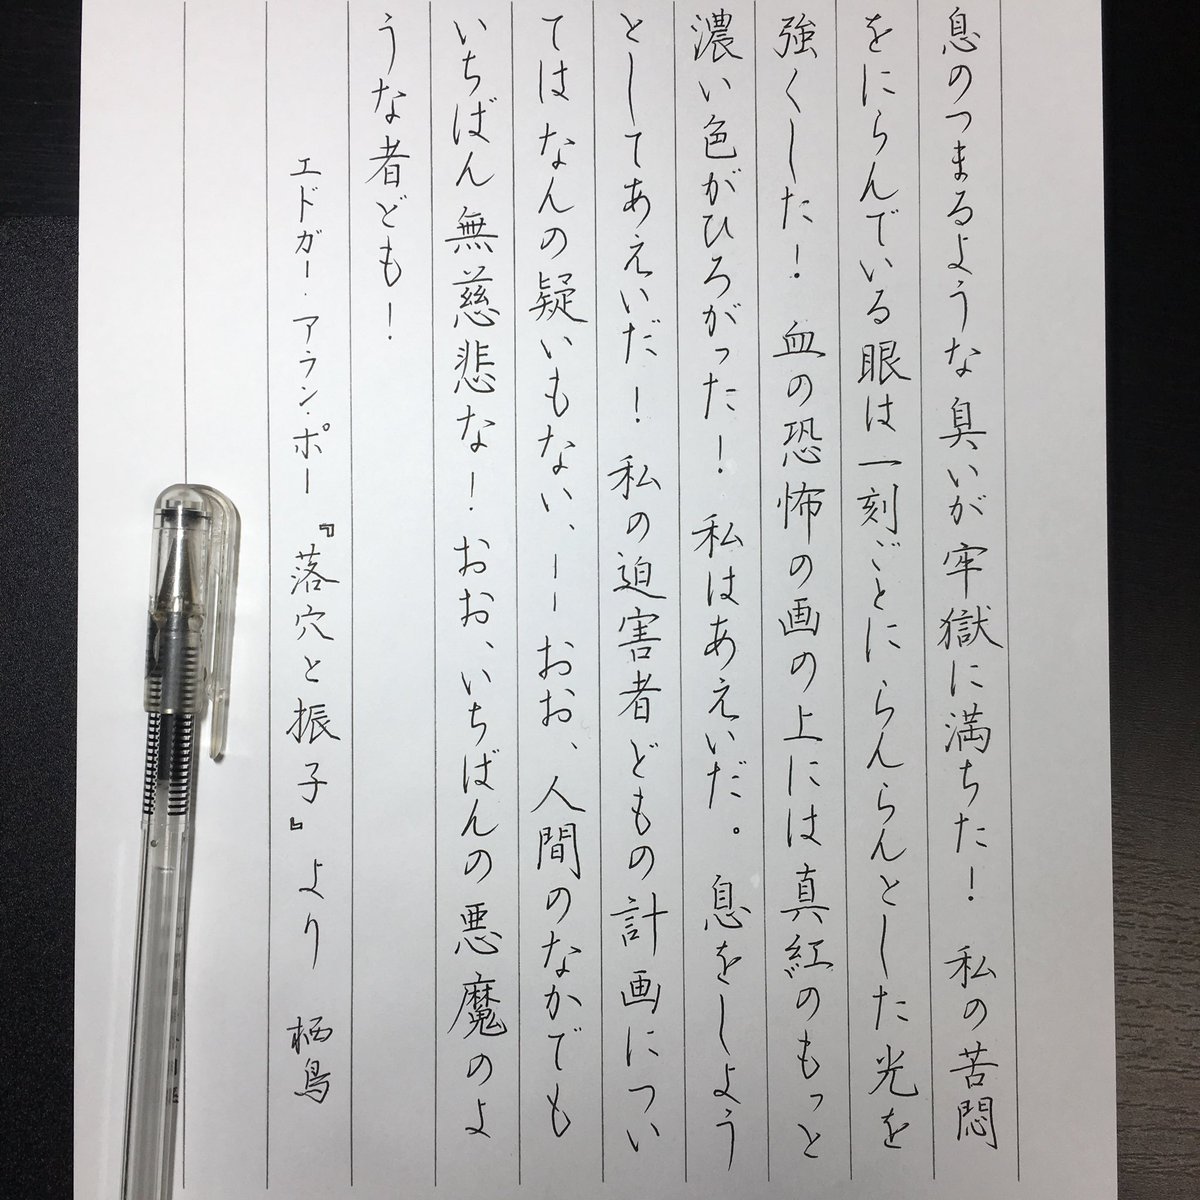 息のつまるような臭いが牢獄に満ちた！　私の苦悶
をにらんでいる眼は一刻ごとにらんらんとした光を
強くした！　血の恐怖の画の上には真紅のもっと
濃い色がひろがった！　私はあえいだ。息をしよう
としてあえいだ！　私の迫害者どもの計画につい
てはなんの疑いもない、――おお、人間のなかでも
いちばん無慈悲な！おお、いちばんの悪魔のよ
うな者ども！
エドガー・アラン・ポー『落穴と振子』より　栖鳥